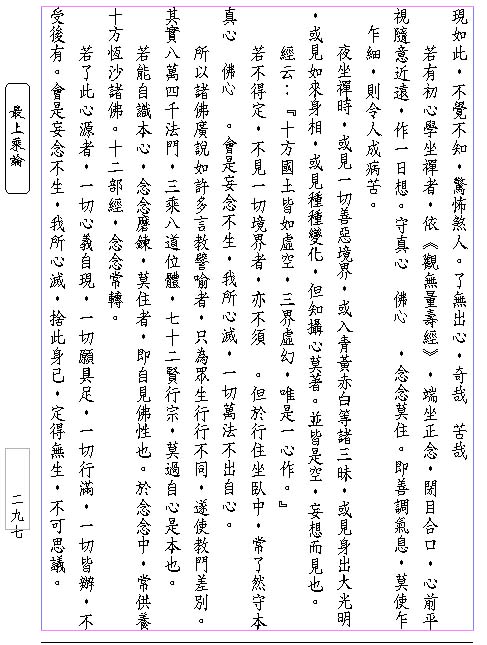 現如此，不覺不知，驚怖煞人。了無出心，奇哉　苦哉
若有初心學坐禪者，依《觀無量壽經》，端坐正念，閉目合口，心前平
視隨意近遠，作一日想。守真心　佛心　，念念莫住。即善調氣息，莫使乍
乍細，則令人成病苦。
夜坐禪時，或見一切善惡境界，或入青黃赤白等諸三昧，或見身出大光明
，或見如來身相，或見種種變化，但知攝心莫著。並皆是空，妄想而見也。
經云：『十方國土皆如虛空，三界虛幻，唯是一心作。』
若不得定，不見一切境界者，亦不須　。但於行住坐臥中，常了然守本
真心　佛心　。會是妄念不生，我所心滅，一切萬法不出自心。
所以諸佛廣說如許多言教譬喻者，只為眾生行行不同，遂使教門差別。
其實八萬四千法門，三乘八道位體，七十二賢行宗，莫過自心是本也。
若能自識本心，念念磨鍊，莫住者，即自見佛性也。於念念中，常供養
十方恆沙諸佛。十二部經，念念常轉。
若了此心源者，一切心義自現，一切願具足，一切行滿，一切皆辦，不
受後有。會是妄念不生，我所心滅，捨此身已，定得無生，不可思議。
最上乘論
二九七